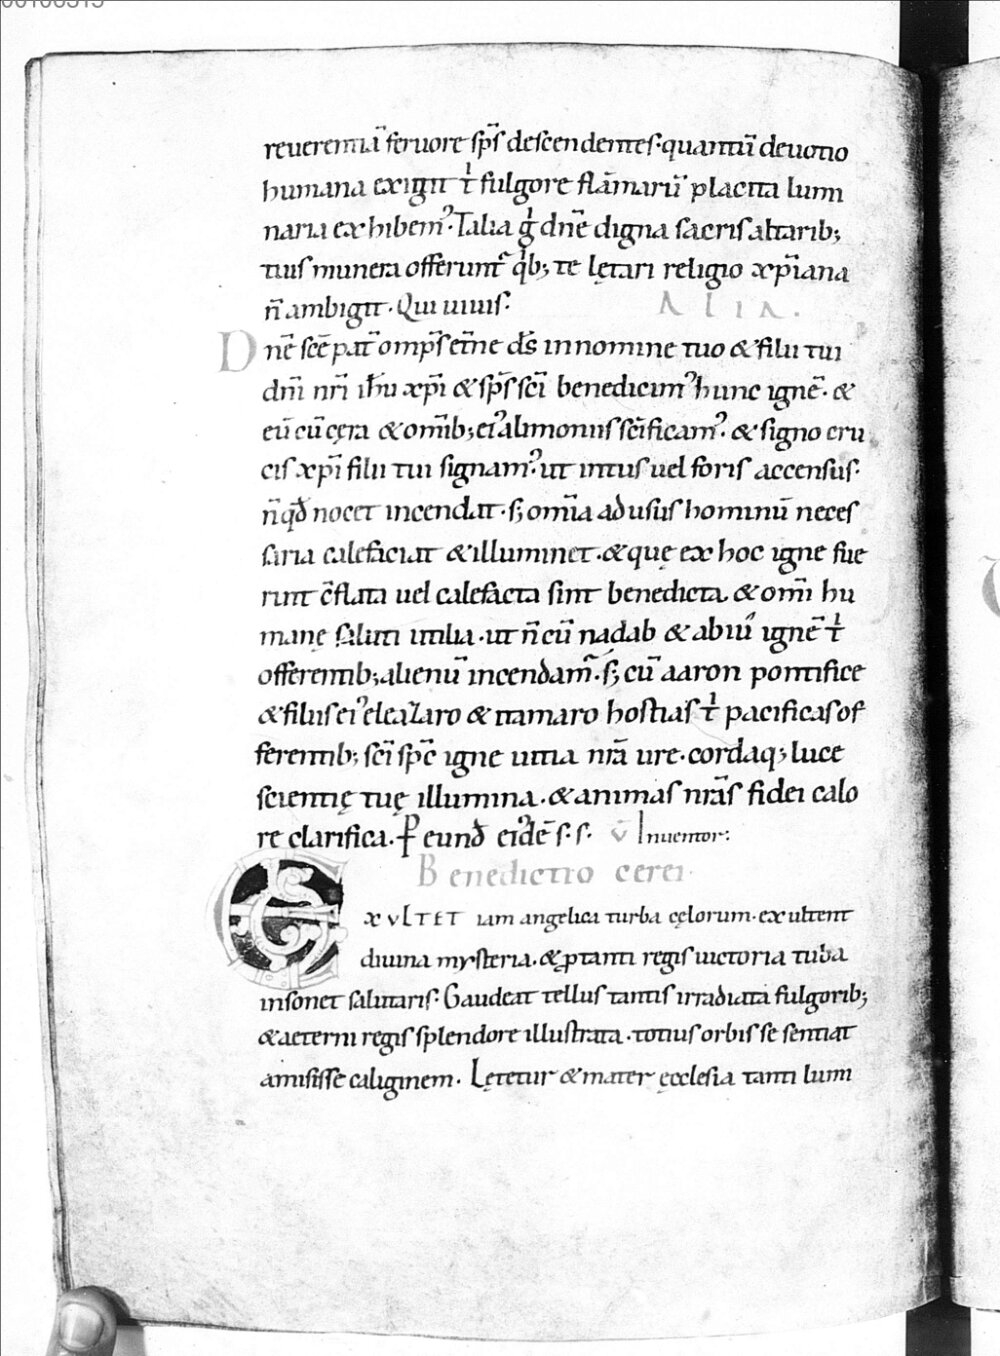 reuerentiā feruore sp̄s descendentes·quantū deuotio
humana exigit t̄ fulgore flāmarū placita lumi
naria exhibem᾽·Talia g̊ dn̄e digna sacris altarib;
tuis munera offerunt᾽ q̊b; te lętari religio xp̄iana
n̄ ambigit·Qui uiuis·
ALIA.
Dn̄e sc̄e pat̄ omp̄s et̄ne ds̄ in nomine tuo & filii tui
dn̄i nr̄i ih̄u xp̄i & sp̄s sc̄i benedicim᾽ hunc ignē·&
eū cū cęra & om̄ib; ei᾽ alimoniis sc̄ificam᾽·& signo cru
cis xp̄i filii tui signam᾽·ut intus uel foris accensus·
n̄ qd̄ nocet incendat·s; om̄ia ad usus hominū neces
saria calefaciat & illuminet·& quę ex hoc igne fue
rint c̄flata uel calefacta sint benedicta & om̄i hu
manę saluti utilia·ut n̄ cū nadab & abiu ignē t̄
offerentib; alienū incendam᾽·s; cū aaron pontifice
& filiis ei᾽ eleazaro & itamaro hostias t̄ pacificas of
ferentib; sc̄i sp̄c igne uitia nr̄a ure·cordaq; luce
scientię tuę illumina·& animas nr̄as fidei calo
re clarifica.P eund̄ ei᾽dē s·s· v̄ Inuentor:
Benedictio cerei·
EXULTET iam angelica turba cęlorum·exultent
diuina mysteria·& ꝓ tanti regis uictoria tuba
insonet salutaris·Gaudeat tellus tantis irradiata fulgorib;
& aeterni regis splendore illustrata·totius orbis se sentiat
amisisse caliginem· Lętetur & mater ęcclesia tanti lumi